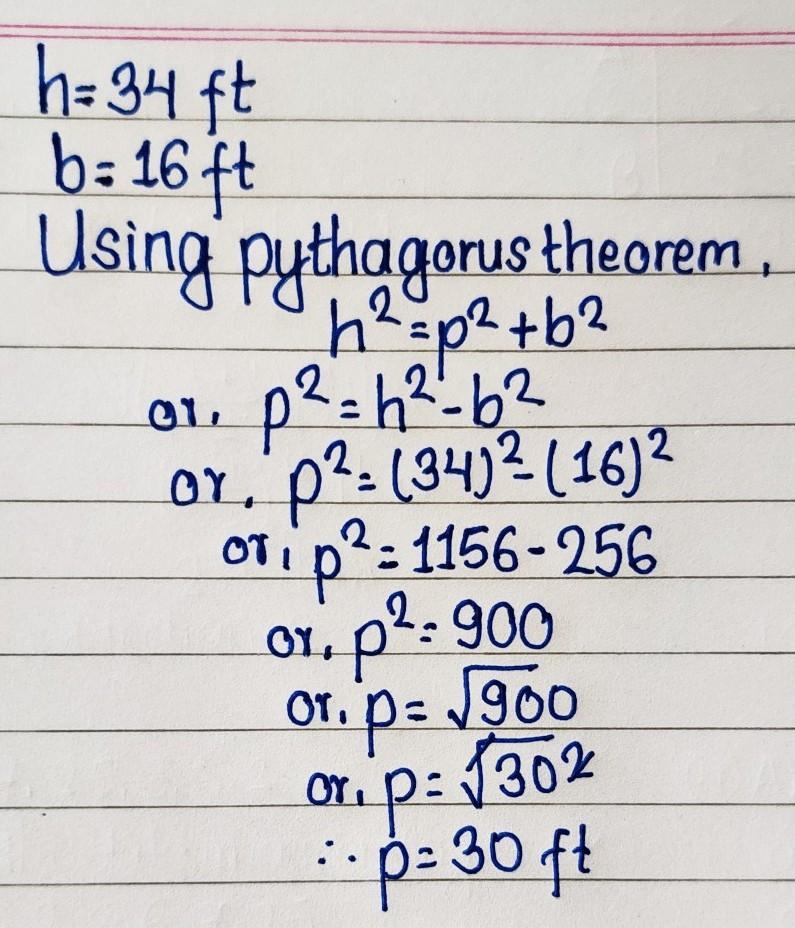 h=34 ft
b=16 ft
Using pythagorus theorem,
h²=p²+b²
or, p²=h²-b²
or, p²=(34)²-(16)²
or, p²=1156-256
or, p²=900
or, p=√900
or, p=√30²
∴ p=30 ft